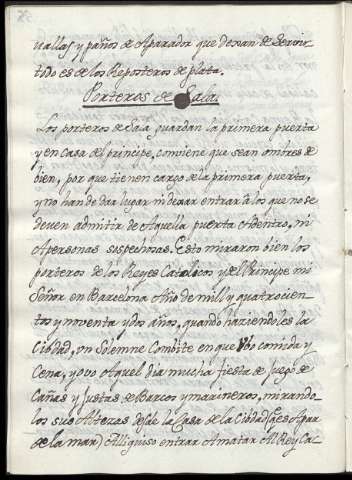 uallas, y paños de Aparador que deuan de Seruir
todo es de los Reposteros de plata.
Porteros de Sala.
Los porteros de Sala guardan la primera puerta
y en Casa del principe, conuiene que sean ombres de
bien, por que tienen cargo de la primera puerta,
y no han de dar lugar ni dexar entrar a los que no se
deuen admitir de Aquella puerta Adentro, ni
Apersonas sospechosas. Esto miraron bien los
porteros de los Reyes Catolicos y del Principe mi
Señor en Barcelona Año de mill y quatrocien
tos y nouenta y dos años, quando haziendoles la
Ciudad, vn Solemne Combite en que Vbo comida y
Cena, y ovo Aquel dia mucha fiesta de Juego de
Cañas y Justas de Barcos y marineros, mirando
los sus Altezas desde la Casa de la Ciudad (q es Apar
de la mar) Alli quiso entrar Amatar Al Rey Ca